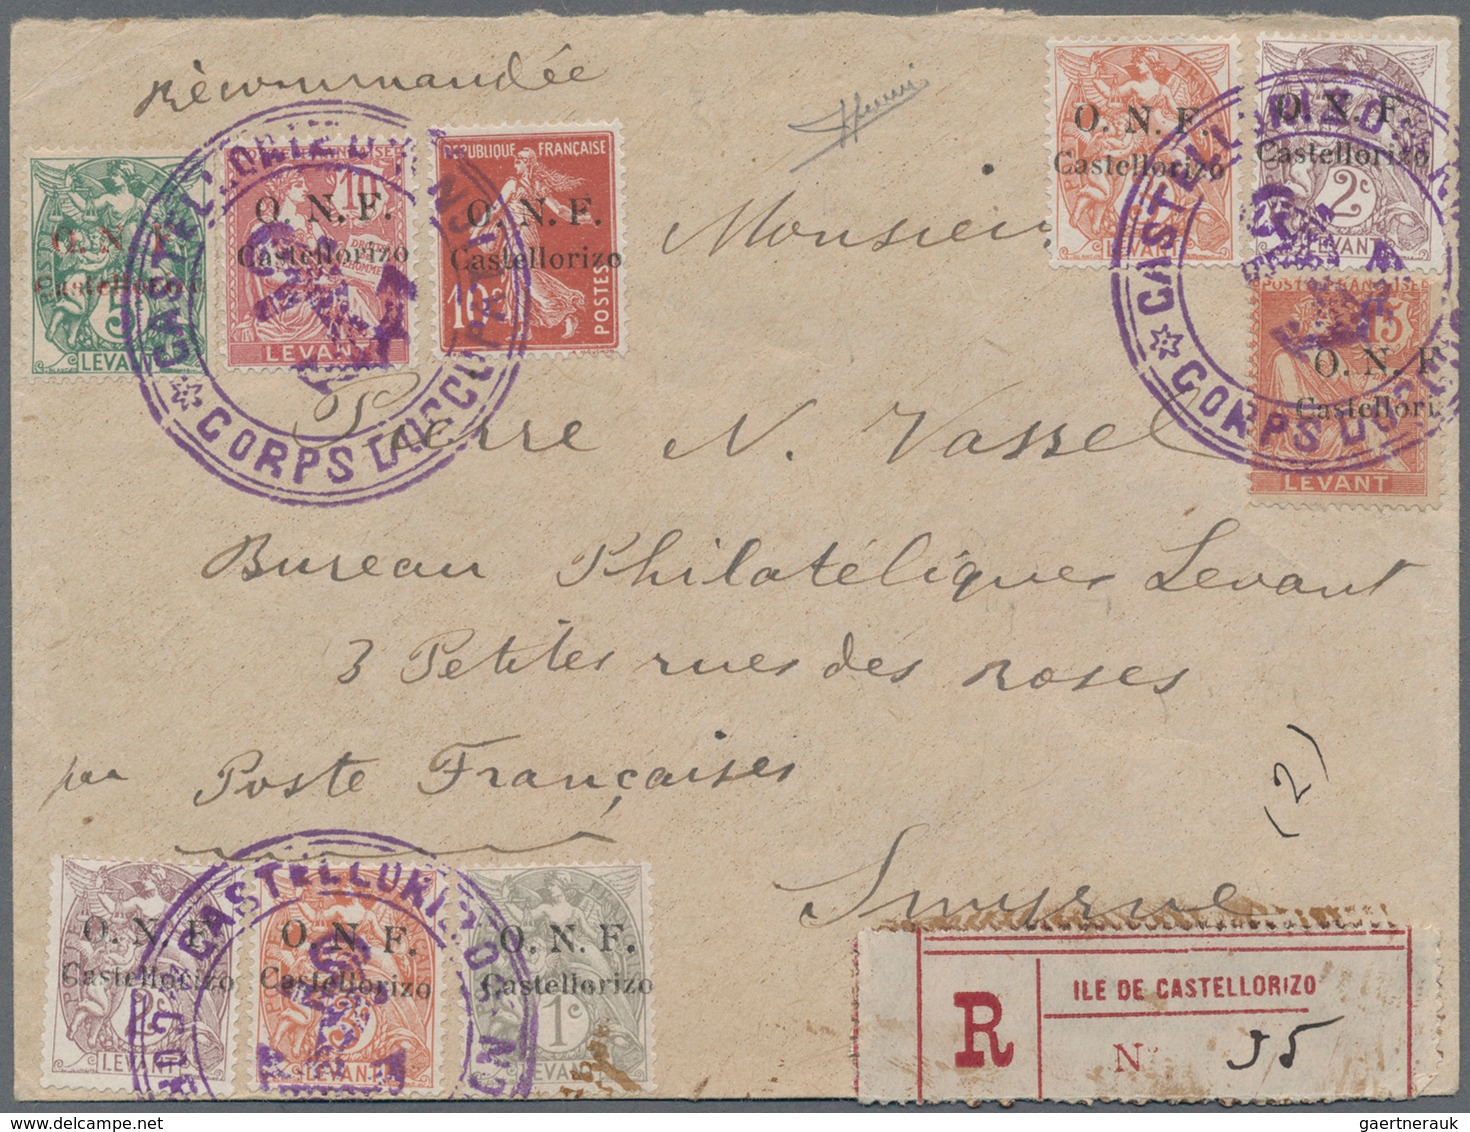 Recommandée
Monsieur
Pierre N. Vassel
Bureau Philatéliques Levant
3 Petites rues des Roses
par Poste Françaises
Smyrne
(2)
O. N. F.
Castellorizo
5
LEVANT
10
O. N. F.
Castellorizo
LEVANT
REPUBLIQUE FRANÇAISE
O. N. F.
Castellorizo
10c
POSTES
O. N. F.
Castellorizo
LEVANT
O. N. F.
Castellorizo
2c
LEVANT
POSTE FRANÇAISE
15
O. N. F
Castellori
LEVANT
CORPS D'OCCUPATION
CASTELLORIZO
CORPS D'OCCU
O. N. F.
Castellorizo
LEVANT
O. N. F.
Castellorizo
LEVANT
O. N. F.
Castellorizo
1c
LEVANT
CASTELLORIZO
R
ILE DE CASTELLORIZO
N° 35
gaertnerauk@delcampe.net